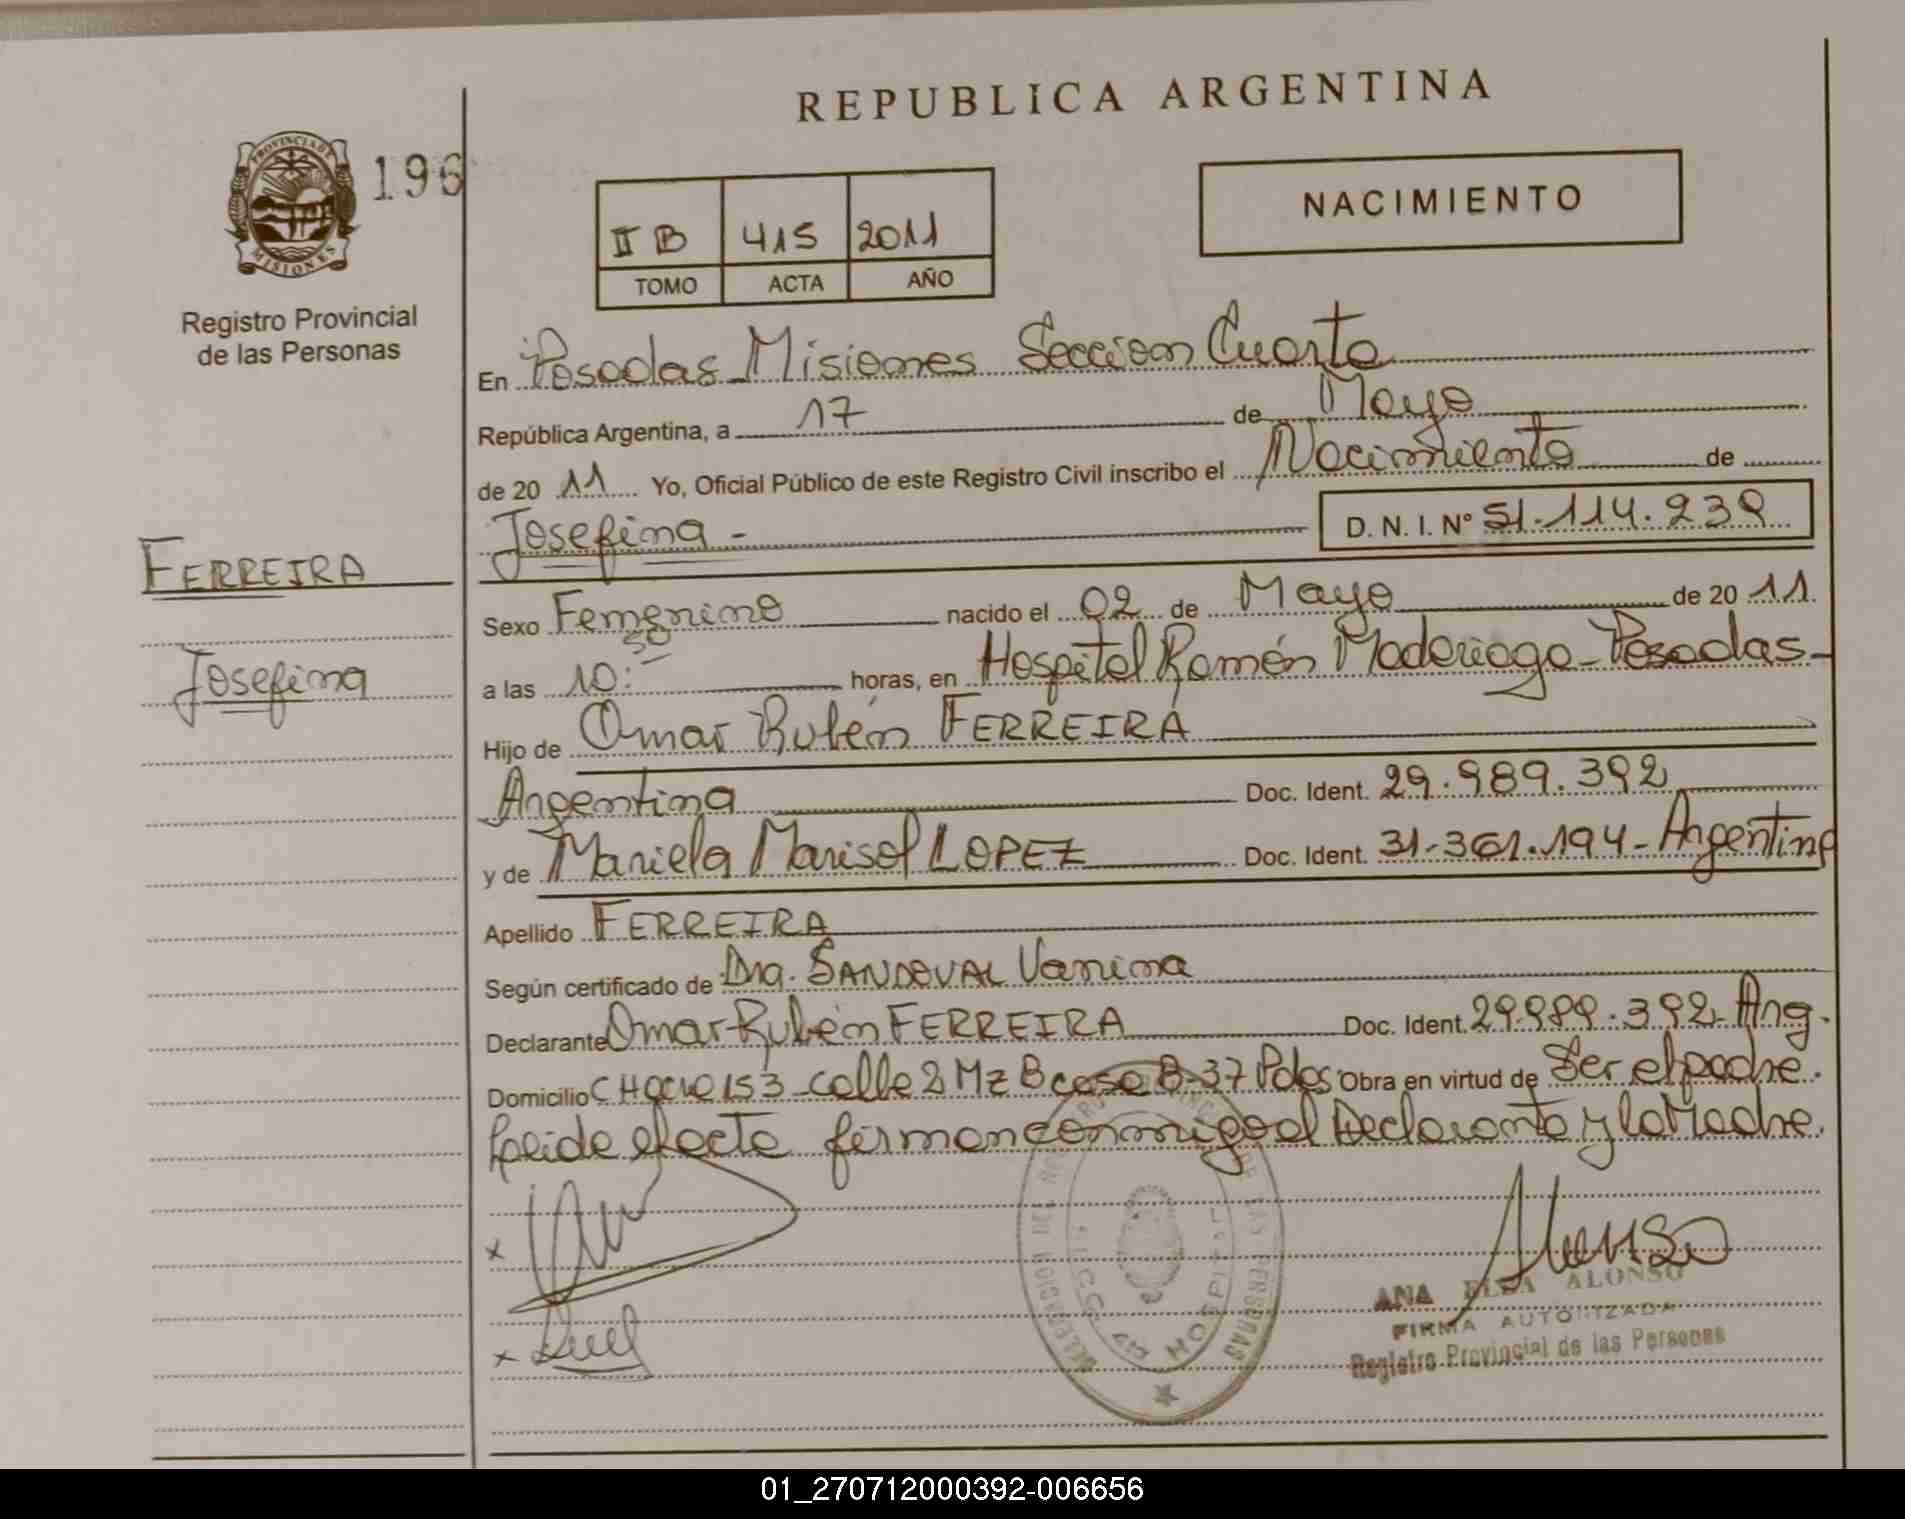 REPUBLICA ARGENTINA
PROVINCIA DE MISIONES
196
Registro Provincial
de las Personas
II B 415 2011
TOMO ACTA AÑO
NACIMIENTO
En Posadas Misiones Seccion Cuarta
República Argentina, a 17 de Mayo
de 20 11 Yo, Oficial Público de este Registro Civil inscribo el Nacimiento de
Josefina - D. N. I. Nº 51.114.239
FERREIRA
Josefina
Sexo Femenino nacido el 02 de Mayo de 20 11
a las 10:50 horas, en Hospital Ramón Madariaga - Posadas -
Hijo de Omar Rubén FERREIRA
Argentina Doc. Ident. 29.989.392
y de Mariela Marisol LOPEZ Doc. Ident. 31-361.194 - Argentina
Apellido FERREIRA
Según certificado de Dra. SANDOVAL Vanina
Declarante Omar Rubén FERREIRA Doc. Ident. 29.989.392 - Arg.
Domicilio CHacra 153 - calle 2 Mz B casa B-37 Pdas Obra en virtud de Ser el padre.
Leida el acta firman conmigo el Declarante y la Madre.
x
x
ANA ELSA ALONSO
FIRMA AUTORIZADA
Registro Provincial de las Personas
01_270712000392-006656